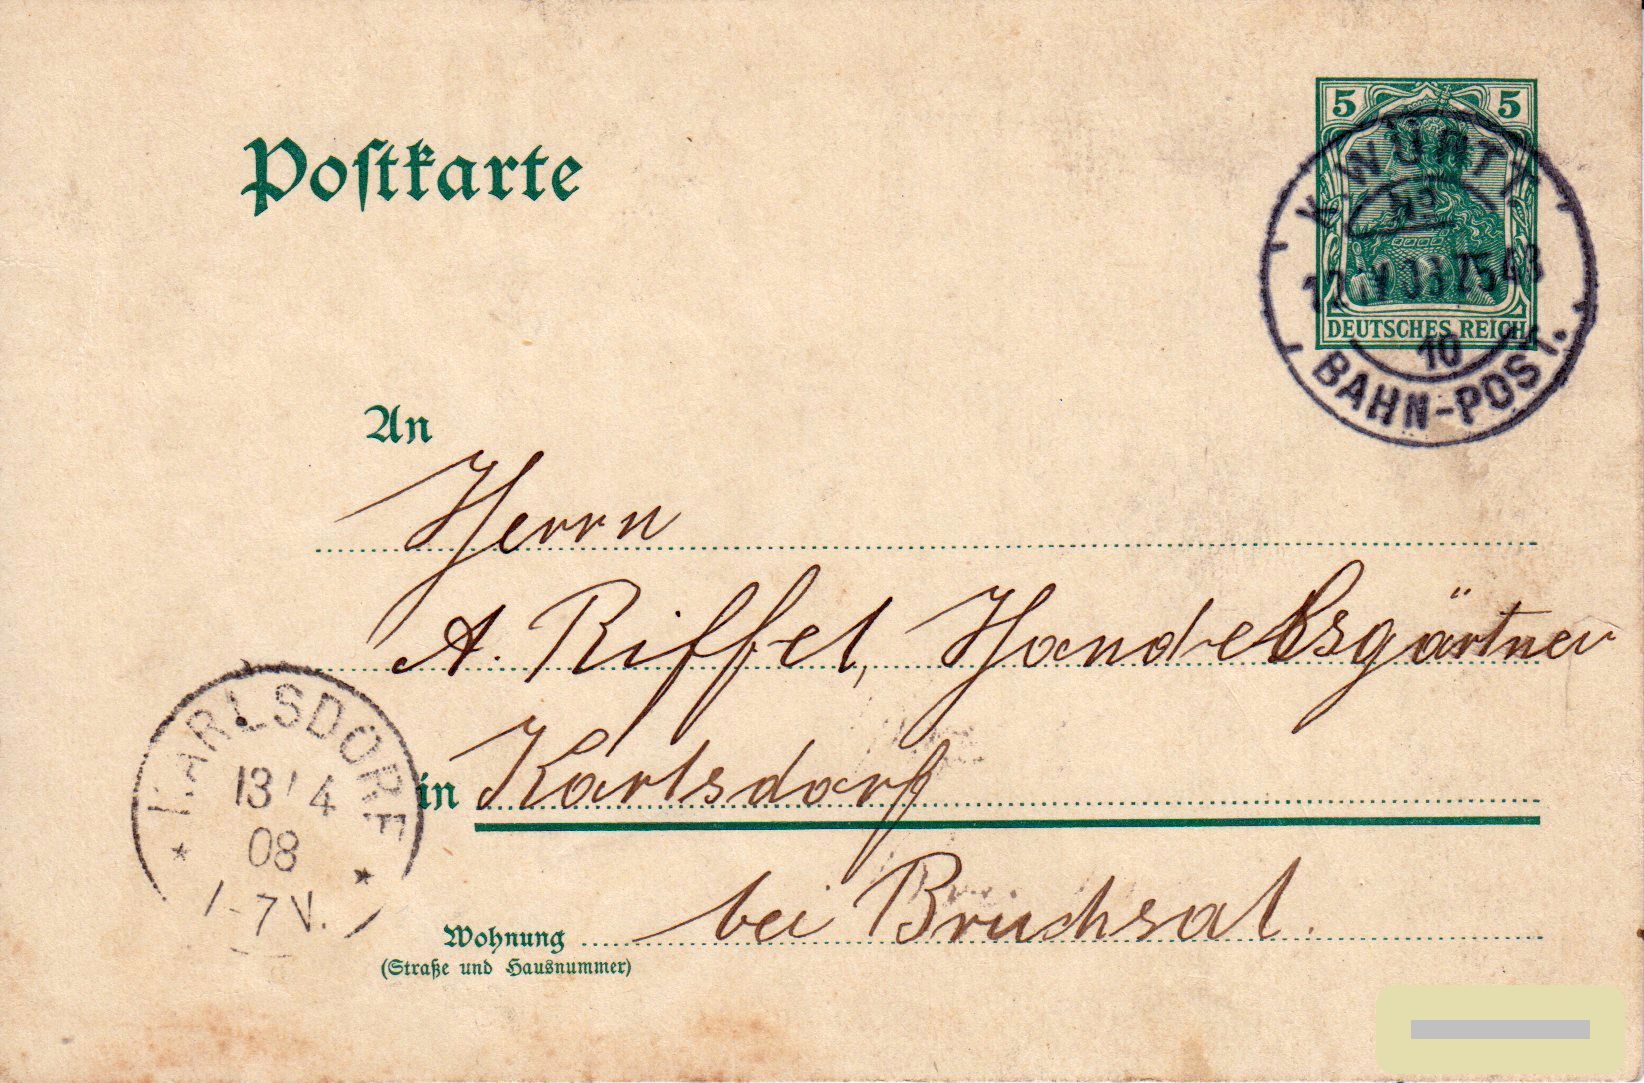 Postkarte
5 5
K. WÜRTT.
DEUTSCHES REICH
10
BAHN-POST.
An
Herrn
A. Riffel, Handelsgärtner
KARLSDORF
13 4
08
-7 V.
in Karlsdorf
bei Bruchsal.
Wohnung
(Straße und Hausnummer)